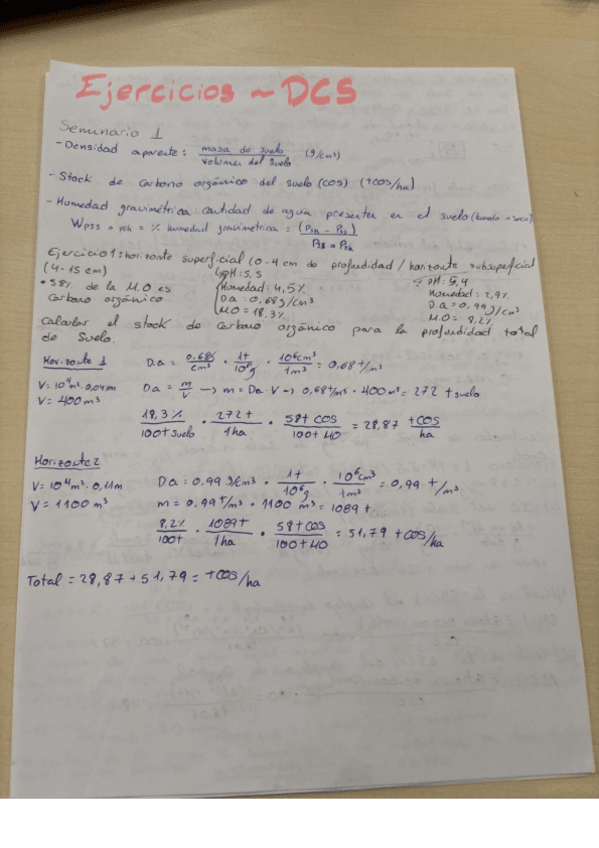 Ejercicios ~ DCS
Seminario 1
- Densidad aparente: masa de suelo / volumen del suelo (g/cm³)
- Stock de carbono orgánico del suelo (COS) (t COS/ha)
- Humedad gravimétrica: cantidad de agua presente en el suelo (húmedo → seco)
Wpss = psh = % humedad gravimétrica =
Ejercicio 1: horizonte superficial (0-4 cm de profundidad / horizonte subsuperficial
(4-15 cm) pH: 5,5 pH: 5,4
• 58% de la M.O es Humedad: 4,5% Humedad = 2,9%
Carbono orgánico Da: 0,68 g/cm³ Da = 0,99 g/cm³
MO = 18,3% MO = 8,2%
Calcular el stock de carbono orgánico para la profundidad total
de suelo.
Horizonte 1 Da = 0,68g/cm³ · 1t/10⁶g · 10⁶cm³/1m³ = 0,68 t/m³
V = 10⁴m² · 0,04m Da = m/V → m = Da · V → 0,68 t/m³ · 400 m³ = 272 t suelo
V = 400 m³
18,3%/100t suelo · 272t/1ha · 58t COS/100t MO = 28,87 t COS/ha
Horizonte 2
V = 10⁴m² · 0,11m Da = 0,99 g/cm³ · 1t/10⁶g · 10⁶cm³/1m³ = 0,99 t/m³
V = 1100 m³ m = 0,99 t/m³ · 1100 m³ = 1089 t
8,2%/100t · 1089t/1ha · 58t COS/100t MO = 51,79 t COS/ha
Total = 28,87 + 51,79 = t COS/ha